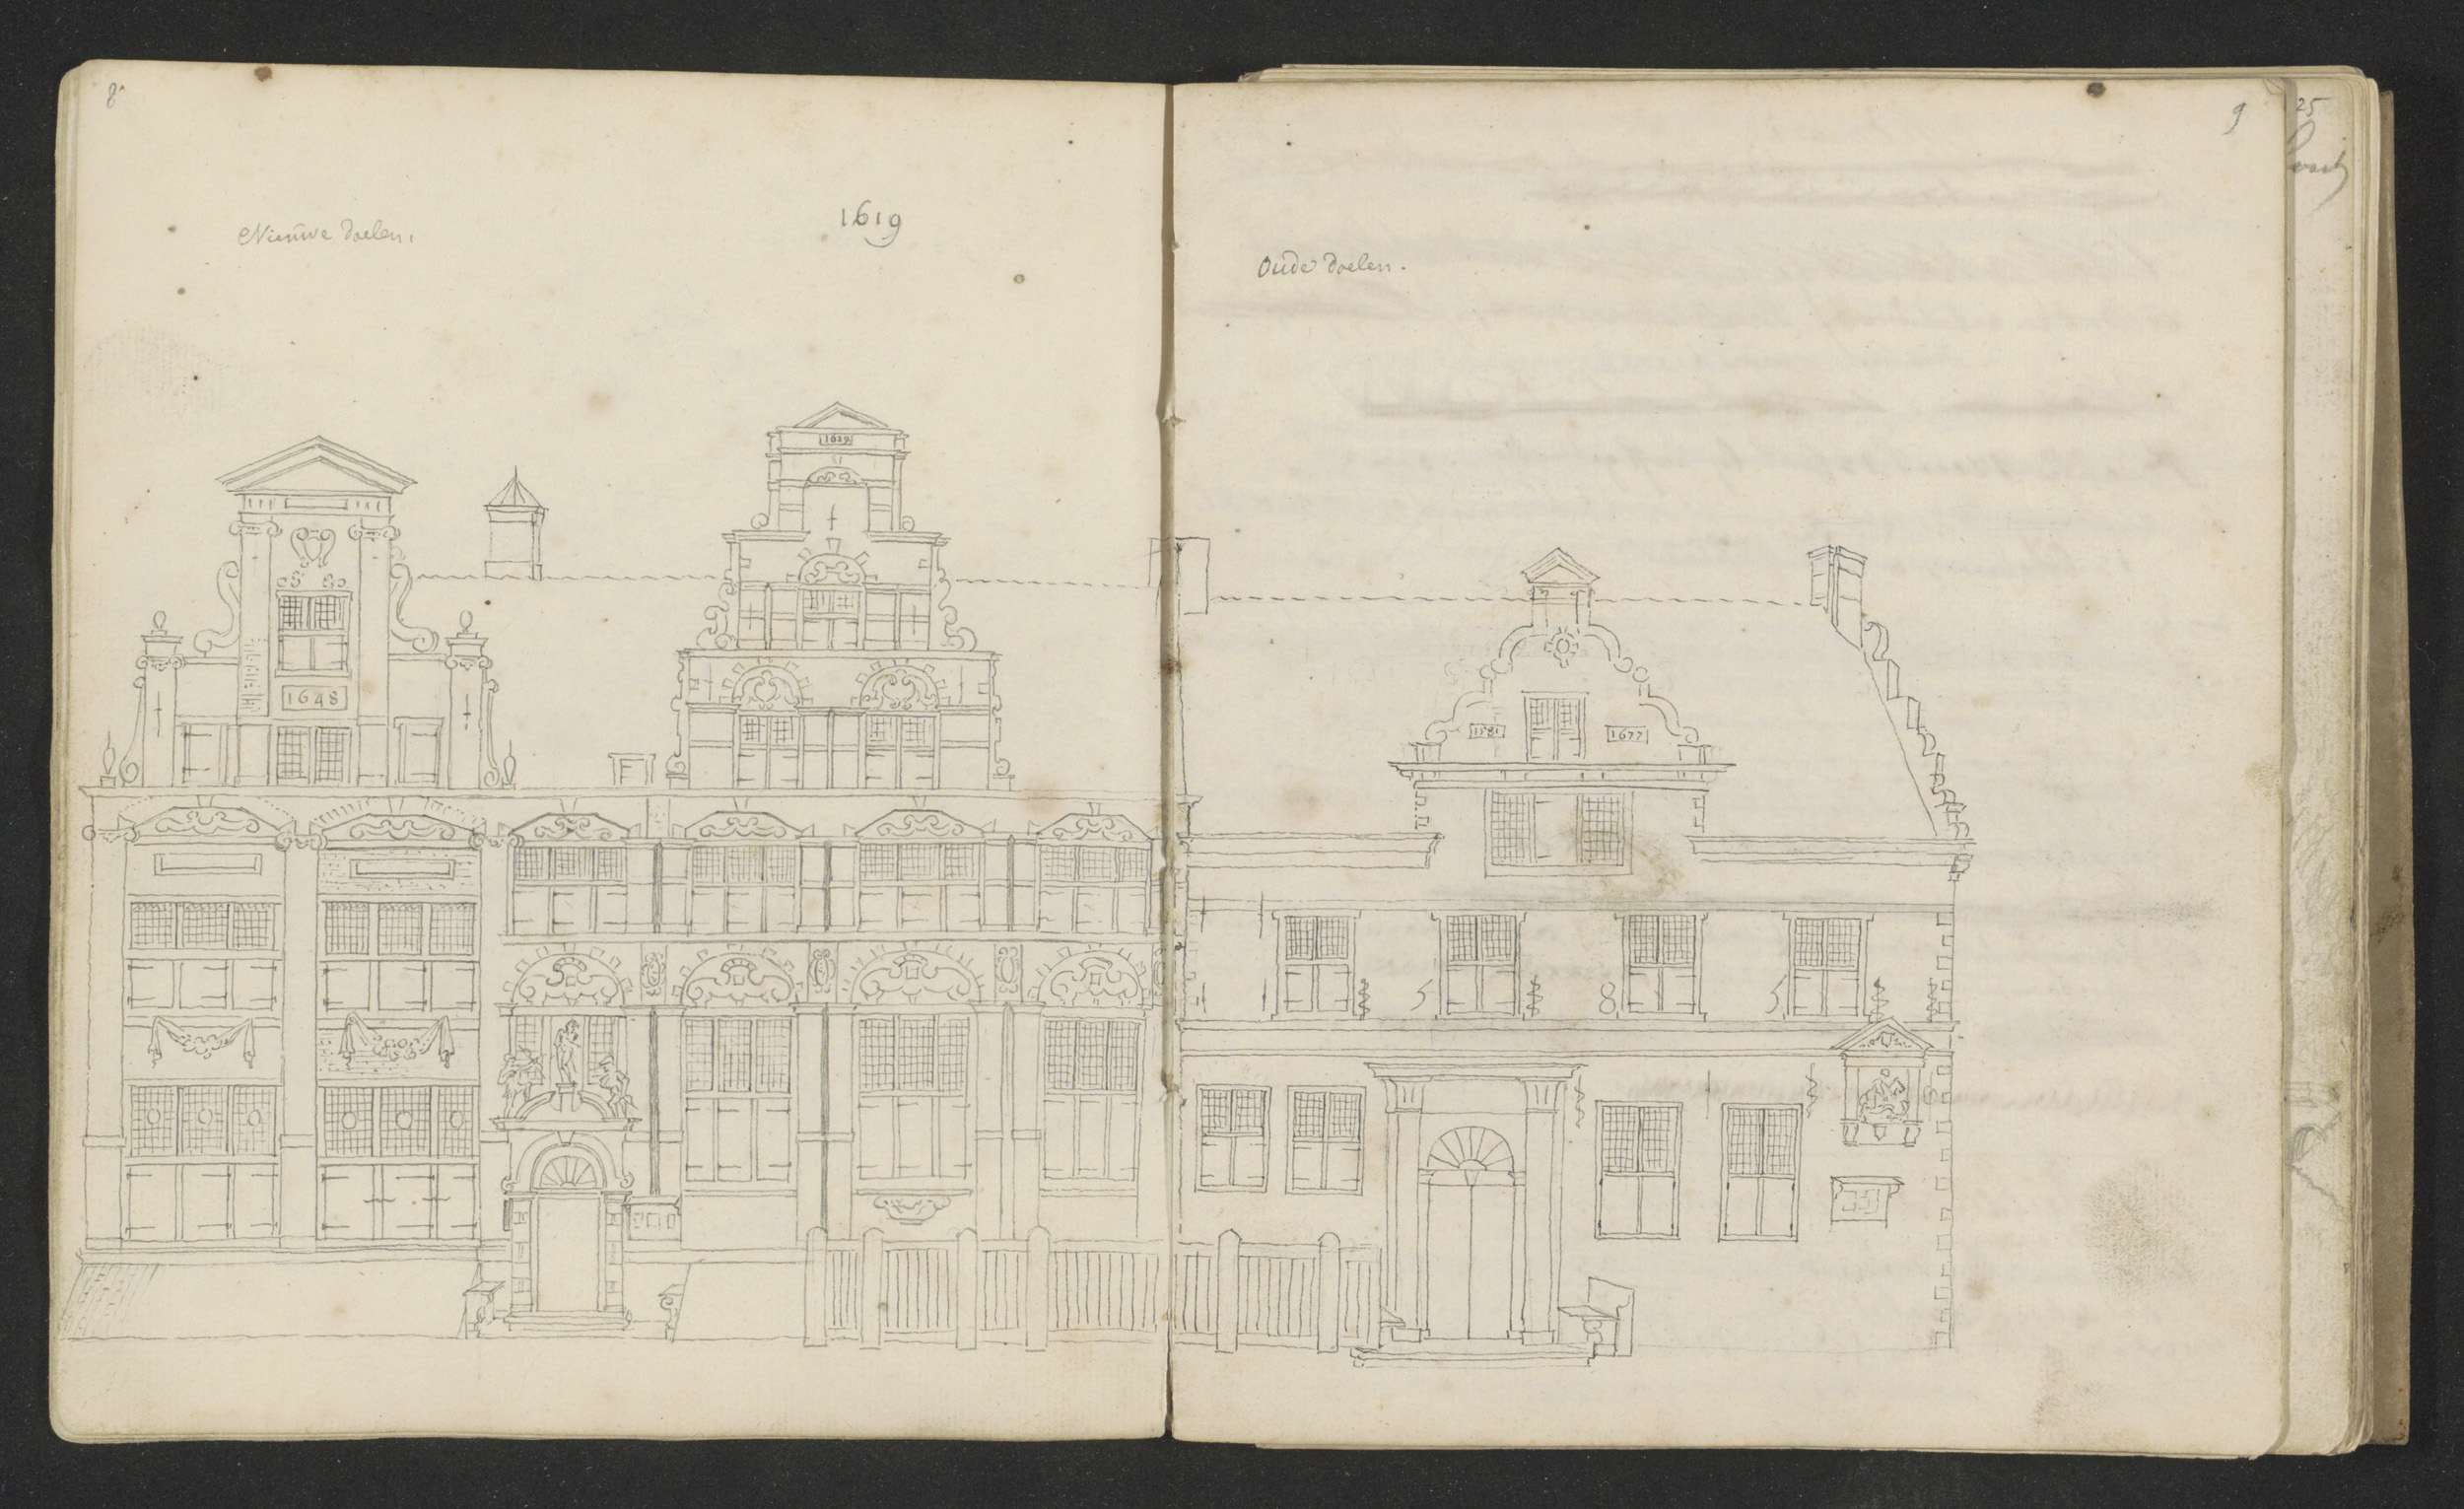 8
Nieuwe Doelen.
1619
1619
1648
9
25
Oude Doelen.
1581
1677
1 5 8 5